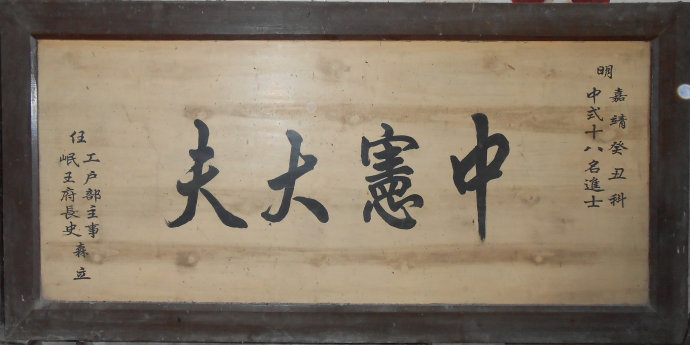 明
嘉靖癸丑科
中式十八名進士
中憲大夫
任
工戶部主事
岷王府長史
森立